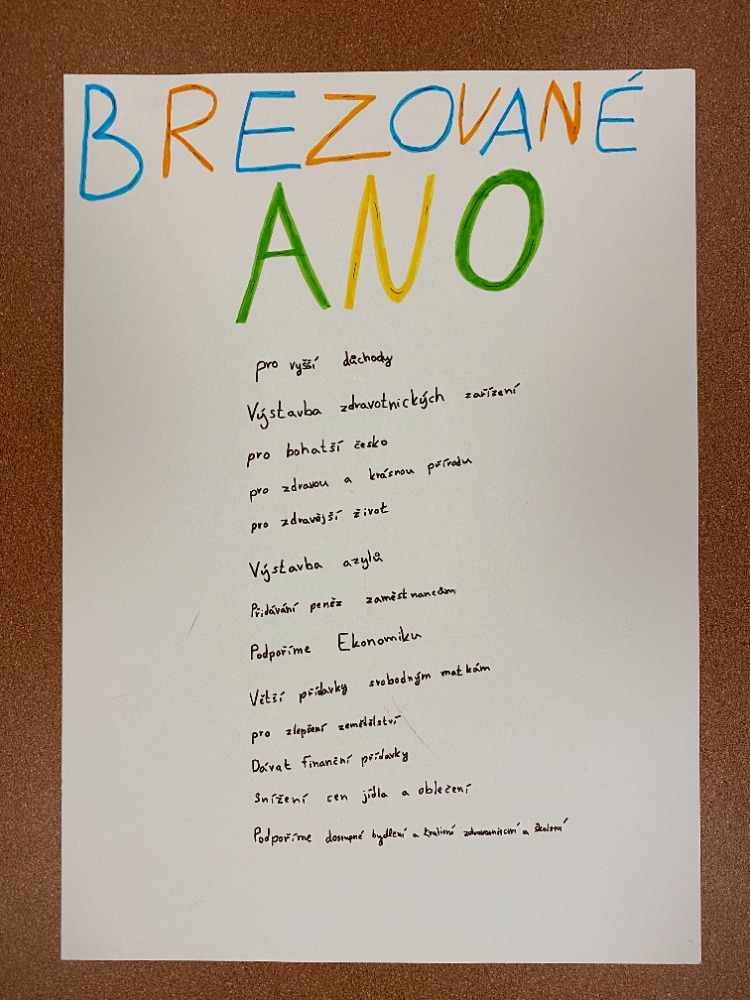 BREZOVANÉ
ANO
pro vyšší důchody
Výstavba zdravotnických zařízení
pro bohatší česko
pro zdravou a krásnou přírodu
pro zdravější život
Výstavba azylů
Přidávání peněz zaměstnancům
Podpoříme Ekonomiku
Větší přídavky svobodným matkám
pro zlepšení zemědělství
Dávat finanční přídavky
Snížení cen jídla a oblečení
Podpoříme dostupné bydlení a kvalitní zdravotnictví a školství